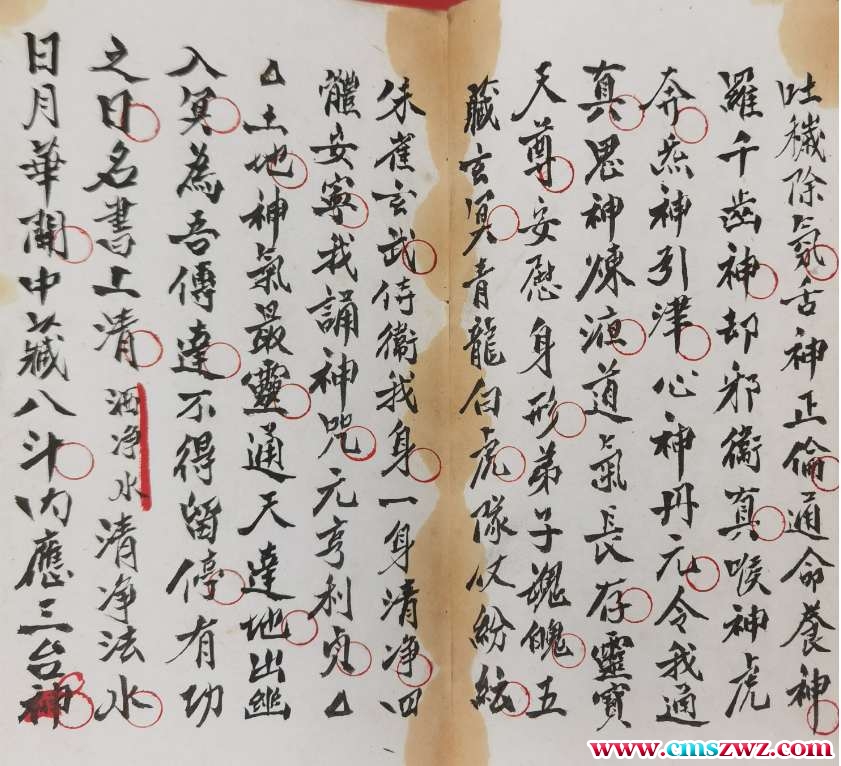 吐穢除氛舌神正倫通命養神
羅千齒神却邪衛真喉神虎
奔炁神引津心神丹元令我通
真思神煉液道氣長存靈寶
天尊安慰身形弟子魂魄五
藏玄冥青龍白虎隊仗紛紜
朱雀玄武侍衛我身一身清净四
體安寧我誦神咒元亨利貞△
△土地神氣最靈通天達地出幽
入冥為吾傳達不得留停有功
之日名書上清洒净水清净法水
日月華開中藏八斗内應三台神
www.cmszwz.com